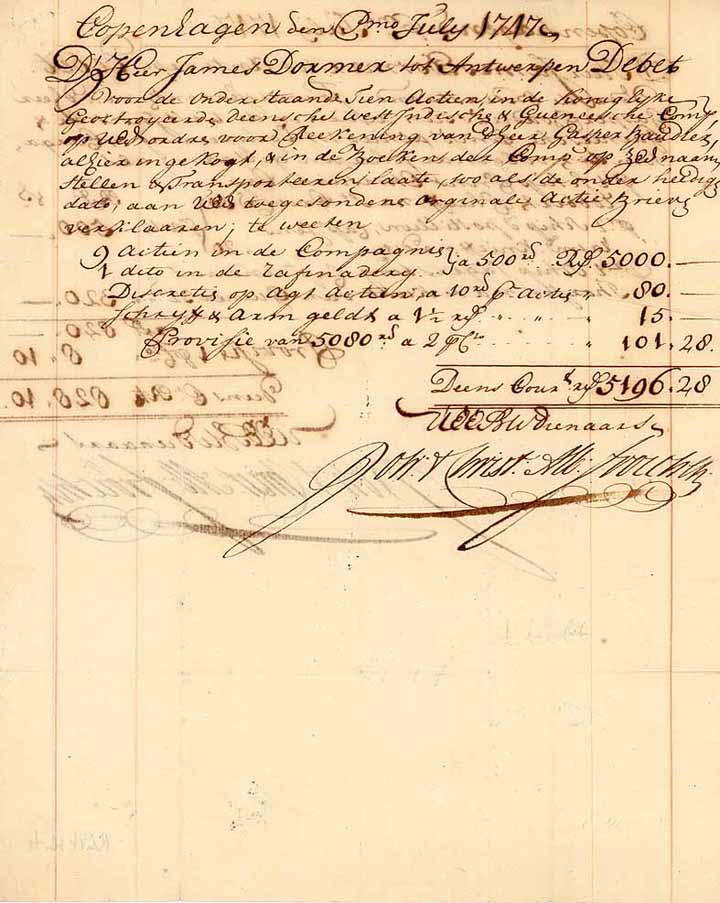 Copenhagen den Pmo July 1747
D'Heer James Dormer tot Antwerpen Debet
Voor de onderstaande Tien Actien, in de koniglijke
Geoctroyeerde deensche westindische & Gueneesche Comp,
op UEd ordre voor Reekening van d'Heer Gasper Baudier,
alhier ingekogt, & in de Boekens der Comp: op naam
stellen & Transporteeren laate, zo als de onder heedige
dato; aan UEd toegesondene orginale Actie Brieve
verklaaren; te weeten
9 Actien in de Compagnie } a 500 rd. Rd. 5000. —
1 dito in de Rafinadery
Discretie op Agt Actien, a 10 rd pr. Actie " 80. —
Schryff & Arm geldt a 1½ rd. " " " 15 —
Provisie van 5080 rd a 2 pCto " 101. 28.
Deens Cour.t rd 5196. 28
UEd DW dienaars
Joh: & Christ: